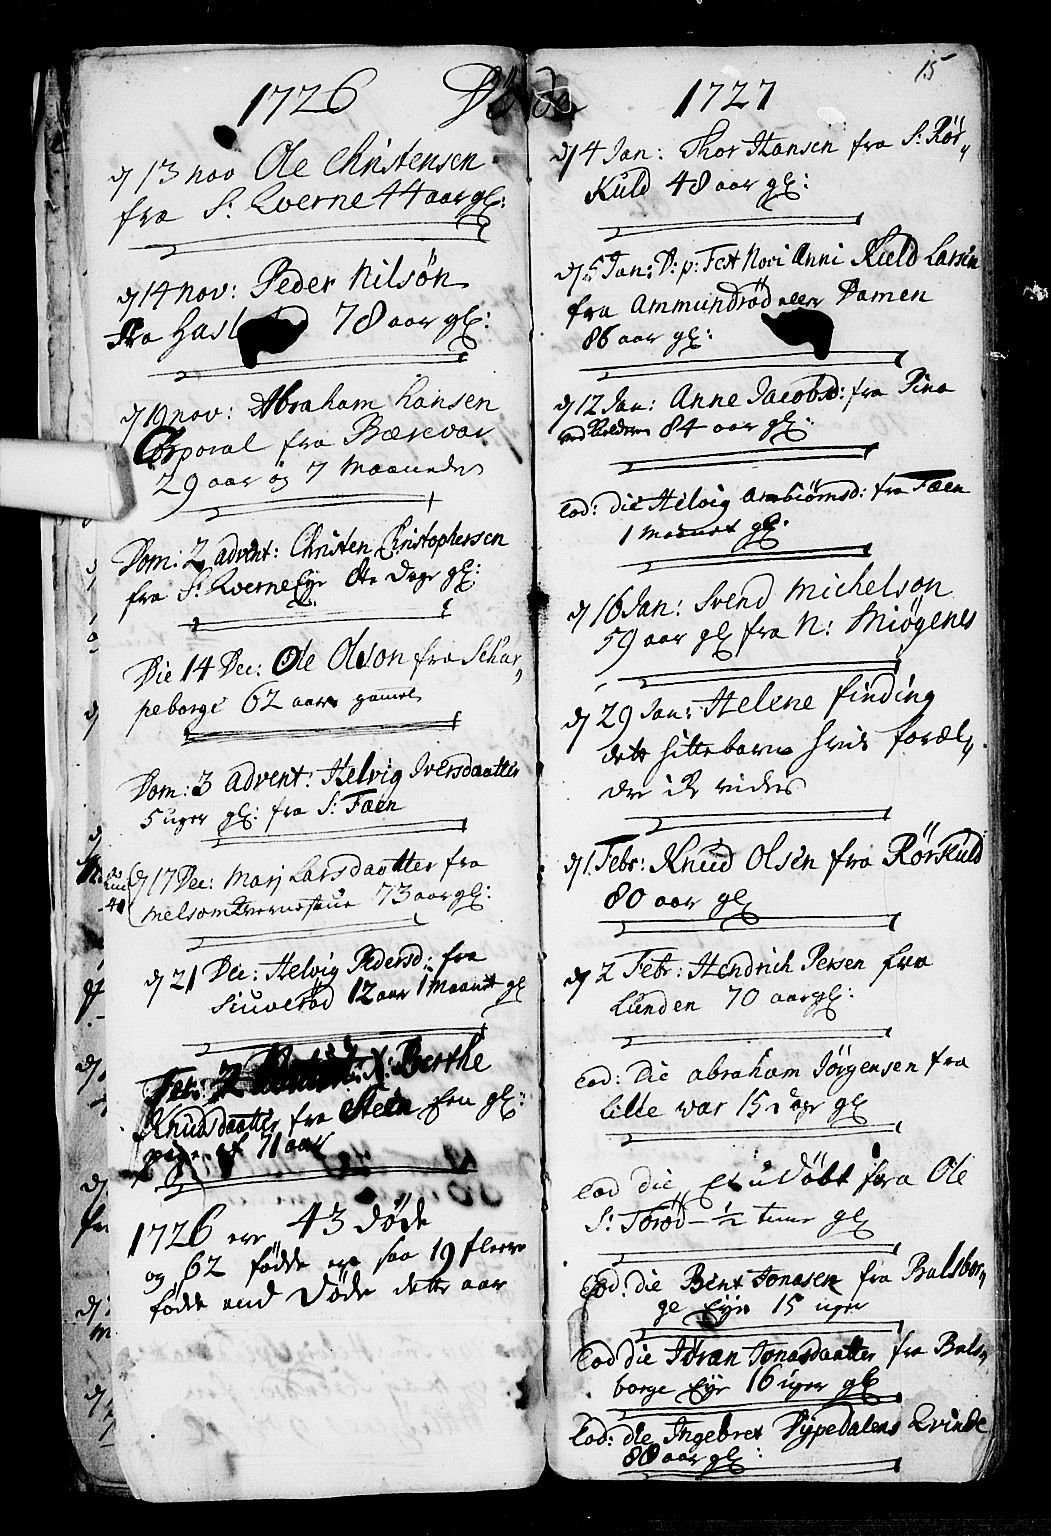 1726 Døde
d 13 nov Ole Christensen
fra S: Qverne 44 aar gl:
d 14 nov: Peder Nilsøn
fra Hasl 78 aar gl:
d 19 nov: Abraham Hansen
Corporal fra Bærevar
29 aar og 7 Maaneder
Dom: 2 advent: Christen Christophersen
fra S: Qverne Eje Otte Dage gl:
Die 14 Dec: Ole Olson fra Schar„
peborge 62 aar gamel
Dom: 3 advent: Helvig Iversdaatter
5 uger gl: fra S: Faen
d 17 Dec: Marj Larsdaatter fra
Melsom 73 aar gl:
d 21 Dec: Helvig Pedersd: fra
Siuverød 12 aar 1 Maanet gl
Fer: 2 Berthe
Knudsdaatter fra Steen Een gl:
pige af 71 aar
1726 ere 43 døde
og 62 fødde ere saa 19 fleere
fødde end Døde dette aar
15
1727
d 4 Jan: Thor Hansen fra S: Rør„
Kuld 48 aar gl:
d 5 Jan: D: p: Fest Novi Anni Kield Larsen
fra Ammundrød eller Damen
86 aar gl:
d 12 Jan: Anne Jacobsd: fra Pina
84 aar gl:
Eod: die Helvig Ambiørnsd: fra Fæen
1 Maanet gl:
d 16 Jan: Svend Michelson
59 aar gl fra N: Miøgenes
d 29 Jan: Helene finding
dette hittebarn hvis foræl„
dre ik vides
d 1 Febr: Knud Olsen fra Rørkuld
80 aar gl
d 2 Febr: Hendrich Persen fra
Lunden 70 aar gl:
Eod: Die abraham Jørgensen fra
Lille war 15 Dage gl
Eod die Et udøbt fra Ole
S: Torød – ½ time gl
Eod: die Bent Jonasen fra Balsbor„
ge Eje 15 uger
Eod die Jøran Jonasdaatter fra Bals„
borge Eje 16 uger gl
Eod: die Ingebret Dypedalens Qvinde
88 aar gl: